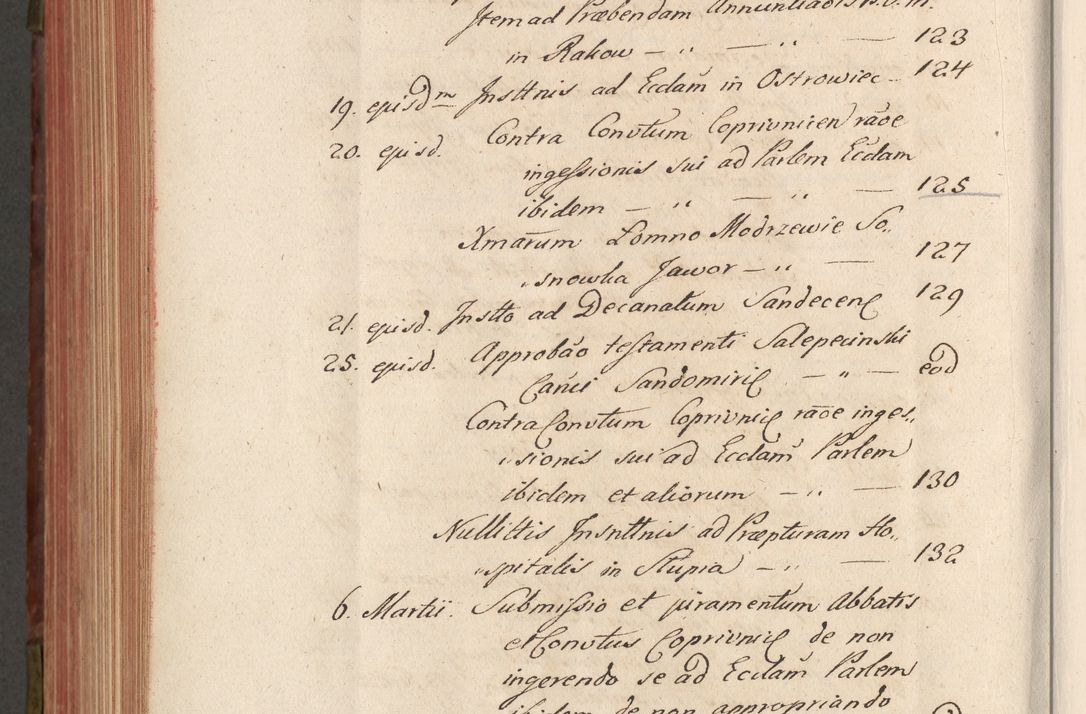 Item ad Præbendam Annuntiaōis B. V. M.
in Rakow — „ — „ — 123
19. episd̄m Insttnis ad Ecclam̄ in Ostrowiec — 124
20. episd. Contra Convtum Coprivnicen̄ rāōe
ingessionis sui ad Parlem Ecclam
ibidem — „ — „ — 125
Xmar̄um Łomno Modrzewie So„
„snowka Jawor — „ — 127
21. episd. Instto ad Decanatum Sandecen 129
25. episd. Approbāo testamenti Salepecinski
Canci Sandomiri — „ — eod
Contra Convtum Coprivnic rāōe inges„
„sionis sui ad Ecclam̄ Parlem
ibidem et aliorum — „ — 130
Nullittis Insnttnis ad Præpturam Ho„
„spitalis in Słupia — „ — 132
6. Martii. Submissio et juramentum Abbatis
et Convtus Coprivnic de non
ingerendo se ad Ecclam̄ Parlem
ibidem de non appropriando